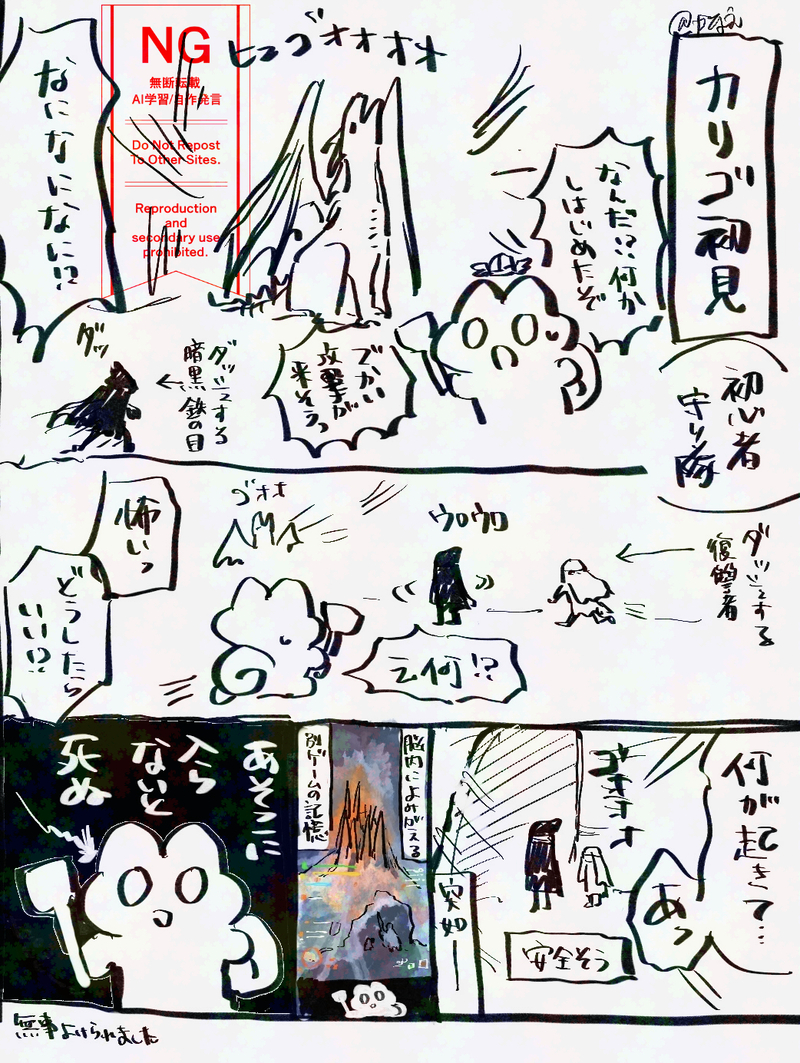 カリゴ初見
初心者
守り隊
なんだ!?何か
しはじめたぞ
ヒュゴオオオオ
NG
無断転載
AI学習/自作発言
Do Not Repost
To Other Sites.
Reproduction
and
secondary use
prohibited.
なになになに!?
でかい
攻撃が
来そうっ
ダッシュする
暗黒鉄の目
ダッ
ダッシュする
復讐者
ウロウロ
え何!?
ゴオオ
怖いっ
どうしたら
いい!?
何が起きて…
あっ
ゴオオオオ
安全そう
突如
脳内によみがえる
別ゲームの記憶
あそこに
入ら
ないと
死ぬ
無事よけられました